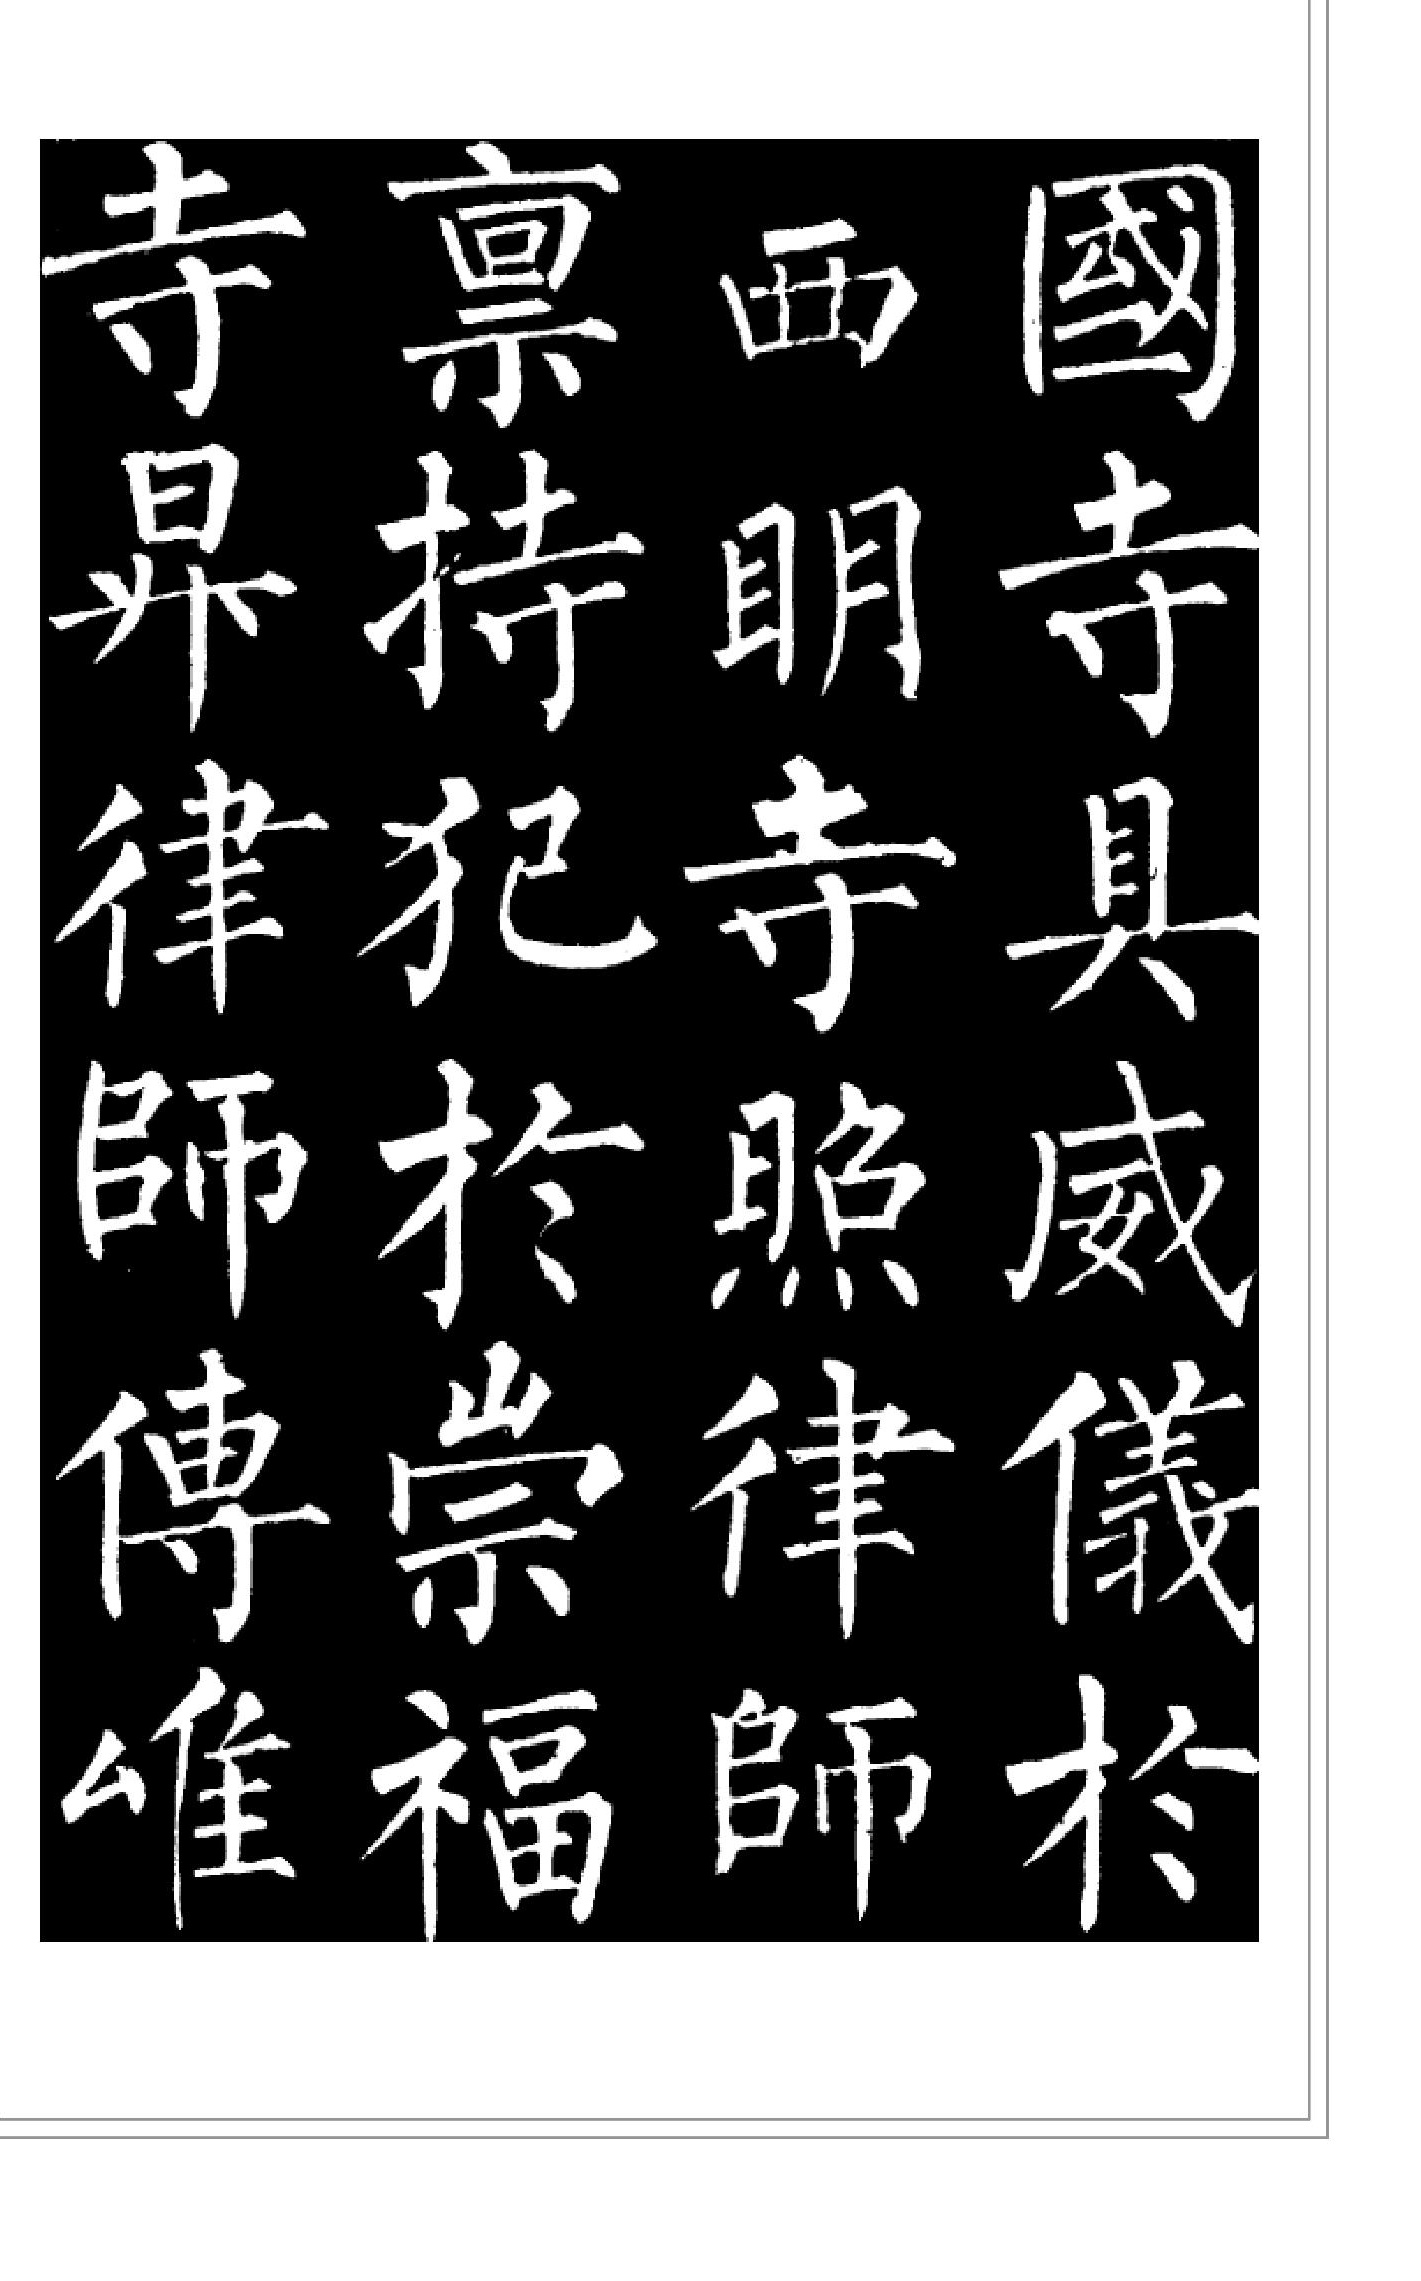 國寺具威儀於
西明寺照律師
禀持犯於崇福
寺昇律師傳唯